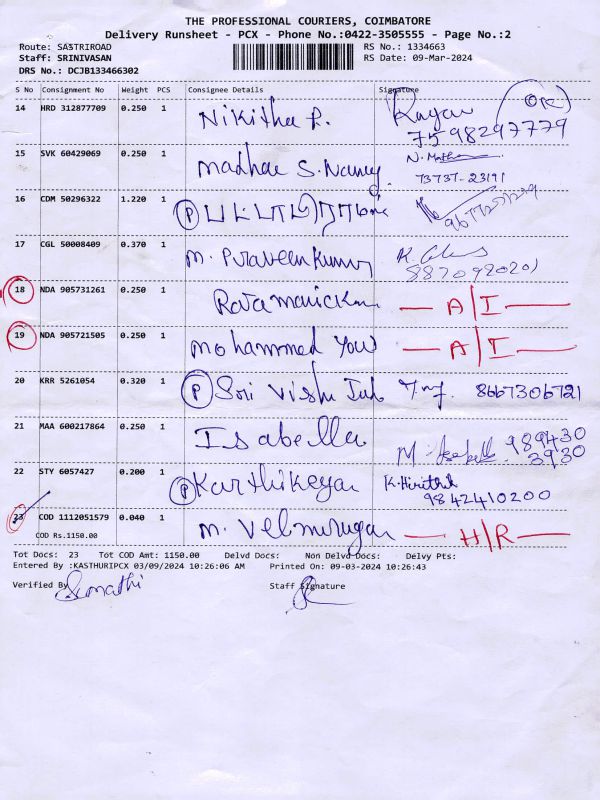 THE PROFESSIONAL COURIERS, COIMBATORE
Delivery Runsheet - PCX - Phone No.:0422-3505555 - Page No.:2
Route: SASTRIROAD RS No.: 1334663
Staff: SRINIVASAN RS Date: 09-Mar-2024
DRS No.: DCJB133466302
S No Consignment No Weight PCS Consignee Details Signature
14 HRD 312877709 0.250 1 Nikitha R. OK
7598297779
15 SVK 60429069 0.250 1 Madhav S. N.
73737-23191
16 CDM 50296322 1.220 1 P
9677251279
17 CGL 50008409 0.370 1 M. Praveen Kumar
8870920201
18 NDA 905731261 0.250 1 Rajamanickam A/I
19 NDA 905721505 0.250 1 Mohammed A/I
20 KRR 5261054 0.320 1 P Sri Vishu 8667306721
21 MAA 600217864 0.250 1 Isabella M. 989430
3930
22 STY 6057427 0.200 1 P Karthikeyan K.
9842410200
23 COD 1112051579 0.040 1 M. Velmurugan H/R
COD Rs.1150.00
Tot Docs: 23 Tot COD Amt: 1150.00 Delvd Docs: Non Delvd Docs: Delvy Pts:
Entered By :KASTHURIPCX 03/09/2024 10:26:06 AM Printed On: 09-03-2024 10:26:43
Verified By Sumathi Staff Signature